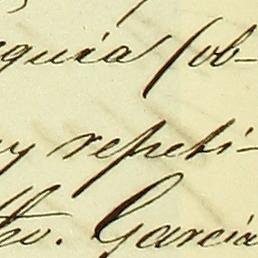 quia (ob-
y repeti-
to. Garcia